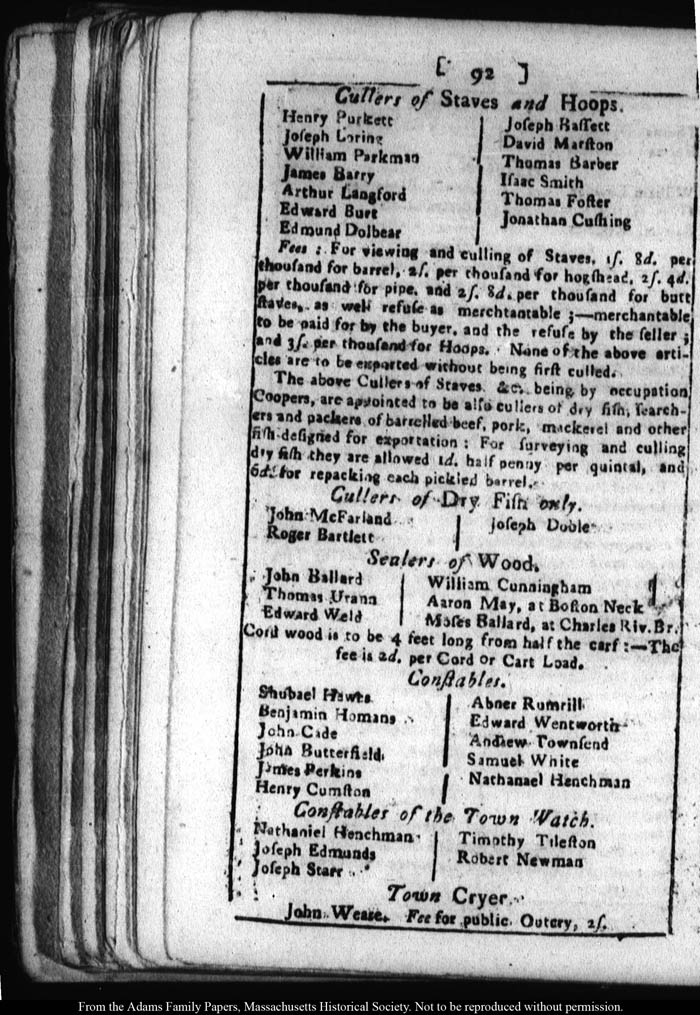 [ 92 ]
Cullers of Staves and Hoops.
Henry Purkett
Joseph Loring
William Parkman
James Barry
Arthur Langford
Edward Burt
Edmund Dolbear
Joseph Bassett
David Marston
Thomas Barber
Isaac Smith
Thomas Foster
Jonathan Cushing
Fees : For viewing and culling of Staves, 1ſ. 8d. per
thouſand for barrel, 2ſ. per thouſand for hogſhead, 2ſ. 4d.
per thouſand for pipe, and 2ſ. 8d. per thouſand for butt
ſtaves, as well refuſe as merchtantable ;—merchantable
to be paid for by the buyer, and the refuſe by the ſeller ;
and 3ſ. per thouſand for Hoops. None of the above arti-
cles are to be exported without being firſt culled.
The above Cullers of Staves &c. being by occupation
Coopers, are appointed to be alſo cullers of dry fiſh, ſearch-
ers and packers of barrelled beef, pork, mackerel and other
fiſh deſigned for exportation : For ſurveying and culling
dry fiſh they are allowed 1d. half penny per quintal, and
6d. for repacking each pickled barrel.
Cullers of Dry Fiſh only.
John McFarland
Roger Bartlett
Joſeph Doble
Sealers of Wood.
John Ballard
Thomas Urann
Edward Weld
William Cunningham
Aaron May, at Boſton Neck
Moſes Ballard, at Charles Riv. Br.
Cord wood is to be 4 feet long from half the carf :—The
fee is 2d. per Cord or Cart Load.
Conſtables.
Shubael Hewes
Benjamin Homans
John Cade
John Butterfield
James Perkins
Henry Cumſton
Abner Rumrill
Edward Wentworth
Andrew Townſend
Samuel White
Nathanael Henchman
Conſtables of the Town Watch.
Nathaniel Henchman
Joſeph Edmunds
Joſeph Starr
Timothy Tileſton
Robert Newman
Town Cryer
John Weare. Fee for public Outcry, 2ſ.
From the Adams Family Papers, Massachusetts Historical Society. Not to be reproduced without permission.